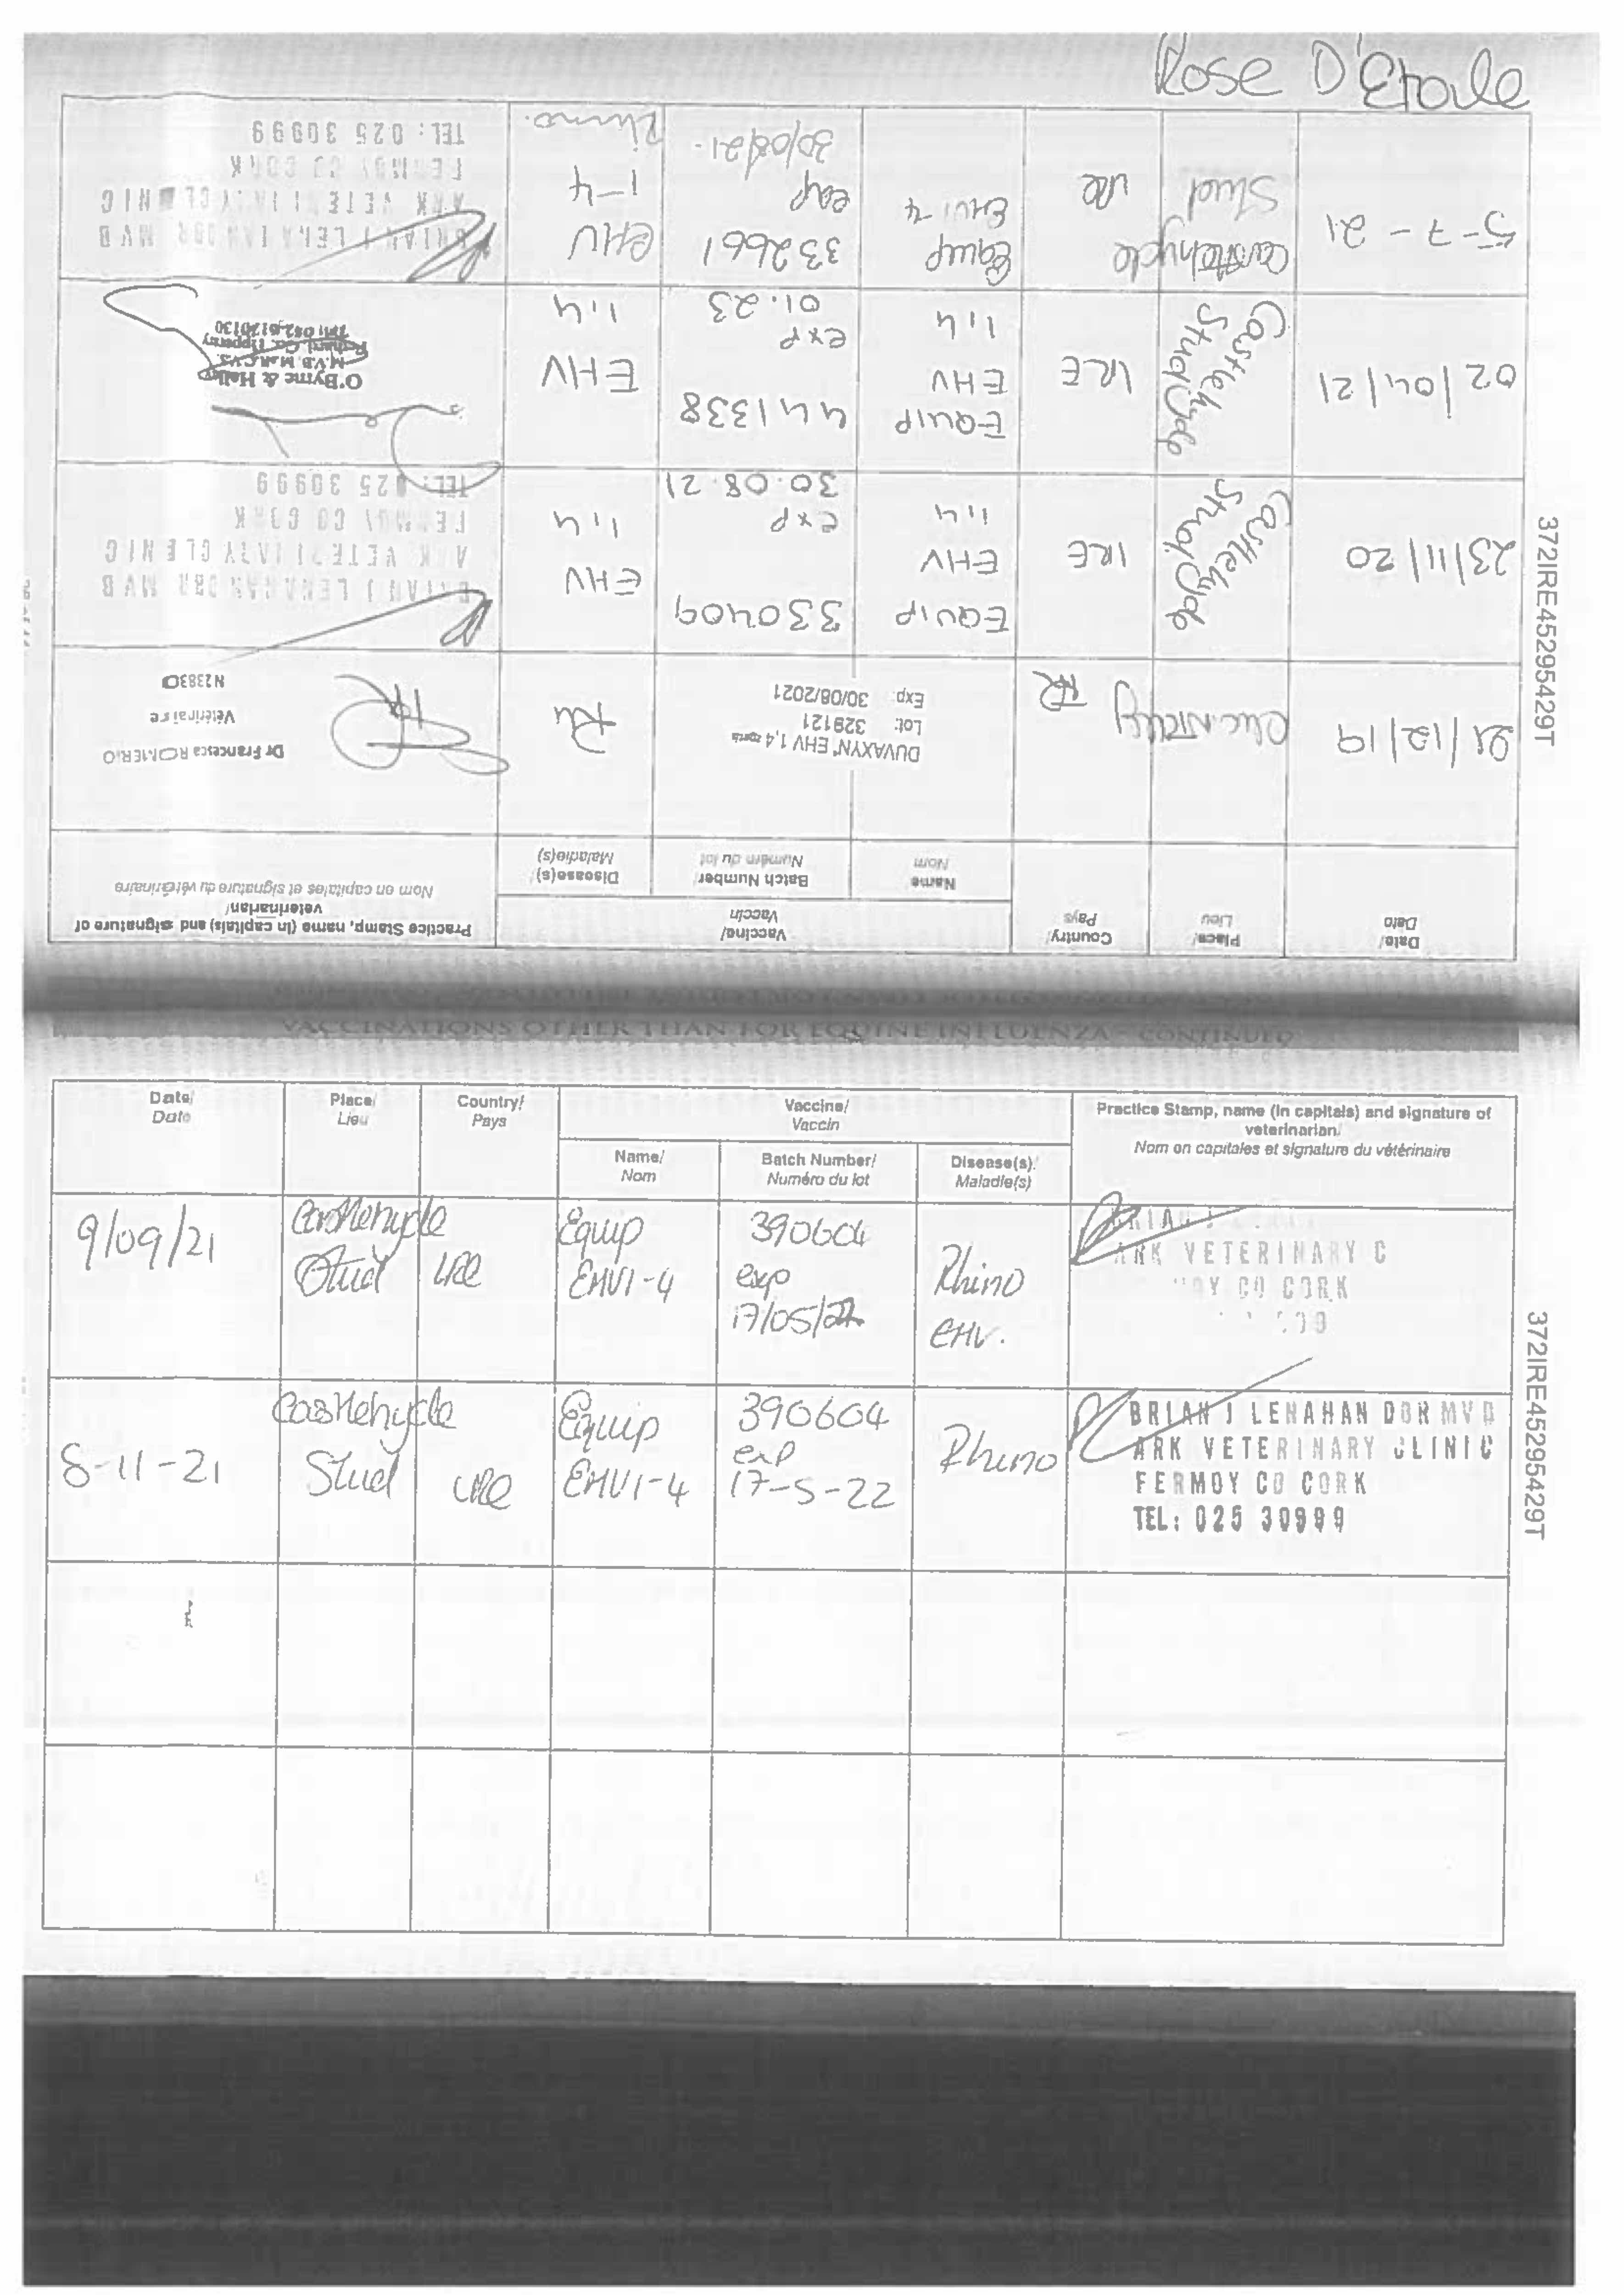 Rose D'Etoile
Date/
Date
Place/
Lieu
Country/
Pays
Vaccine/
Vaccin
Practice Stamp, name (in capitals) and signature of
veterinarian/
Nom en capitales et signature du vétérinaire
Name
Nom
Batch Number
Numéro du lot
Disease(s)/
Maladie(s)
21/12/19
FR
DUVAXYN EHV 1,4
Lot: 329121
Exp: 30/08/2021
Rh
Dr Francesca ROMERIO
Vétérinaire
N23830
23/11/20
Castlehyde
Stud
IRE
EQUIP
EHV
1,4
330409
exp
30.08.21
EHV
1,4
BRIAN J LENAHAN DBR MVB
ARK VETERINARY CLINIC
FERMOY CO CORK
TEL: 025 30999
02/04/21
Castlehyde
Stud
IRE
EQUIP
EHV
1,4
441338
exp
01.23
EHV
1,4
O'Byrne & Halley
M.V.B. M.R.C.V.S.
Fethard, Co. Tipperary
5-7-21
Castlehyde
Stud
IRE
Equip
EHV1-4
332661
exp
30/08/21.
EHV
1-4
Rhino.
BRIAN J LENAHAN DBR MVB
ARK VETERINARY CLINIC
FERMOY CO CORK
TEL: 025 30999
372IRE45295429T
VACCINATIONS OTHER THAN FOR EQUINE INFLUENZA - CONTINUED
Date/
Date
Place/
Lieu
Country/
Pays
Vaccine/
Vaccin
Practice Stamp, name (in capitals) and signature of
veterinarian/
Nom en capitales et signature du vétérinaire
Name/
Nom
Batch Number/
Numéro du lot
Disease(s)/
Maladie(s)
9/09/21
Castlehyde
Stud
IRE
Equip
EHV1-4
390604
exp
17/05/22
Rhino
EHV.
BRIAN J
ARK VETERINARY C
CO CORK
8-11-21
Castlehyde
Stud
IRE
Equip
EHV1-4
390604
exp
17-5-22
Rhino
BRIAN J LENAHAN DBR MVB
ARK VETERINARY CLINIC
FERMOY CO CORK
TEL: 025 30999
372IRE45295429T